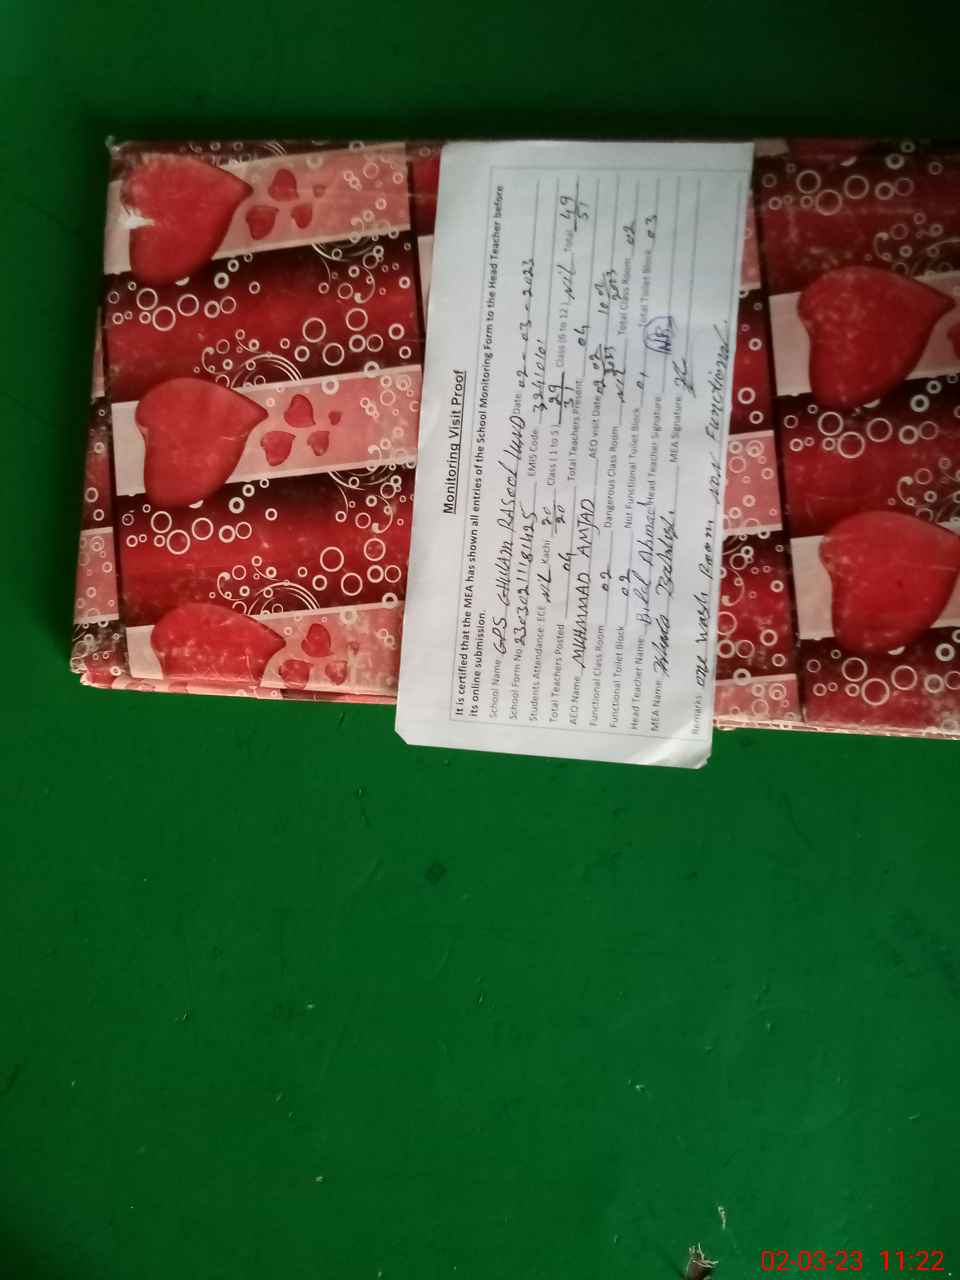 Monitoring Visit Proof
It is certified that the MEA has shown all entries of the School Monitoring Form to the Head Teacher before
its online submission.
School Name GPS GHULAM RASOOL LUND Date 02-03-2023
School Form No 230302111811425 EMIS Code: 32410101
Students Attendance: ECE NIL Kachi 20/20 Class (1 to 5) 29/31 Class (6 to 12) NIL Total 49/51
Total Teachers Posted 04 Total Teachers Present 04
AEO Name MUHMMAD AMJAD AEO visit Date 02 02 2023 10 02 2023
Functional Class Room 02 Dangerous Class Room Nil Total Class Room 02
Functional Toilet Block 02 Not Functional Toilet Block 01 Total Toilet Block 03
Head Teacher Name Bilal Ahmad Head Teacher Signature
MEA Name: MEA Signature
Remarks: one wash Room non Functional.
02-03-23 11:22